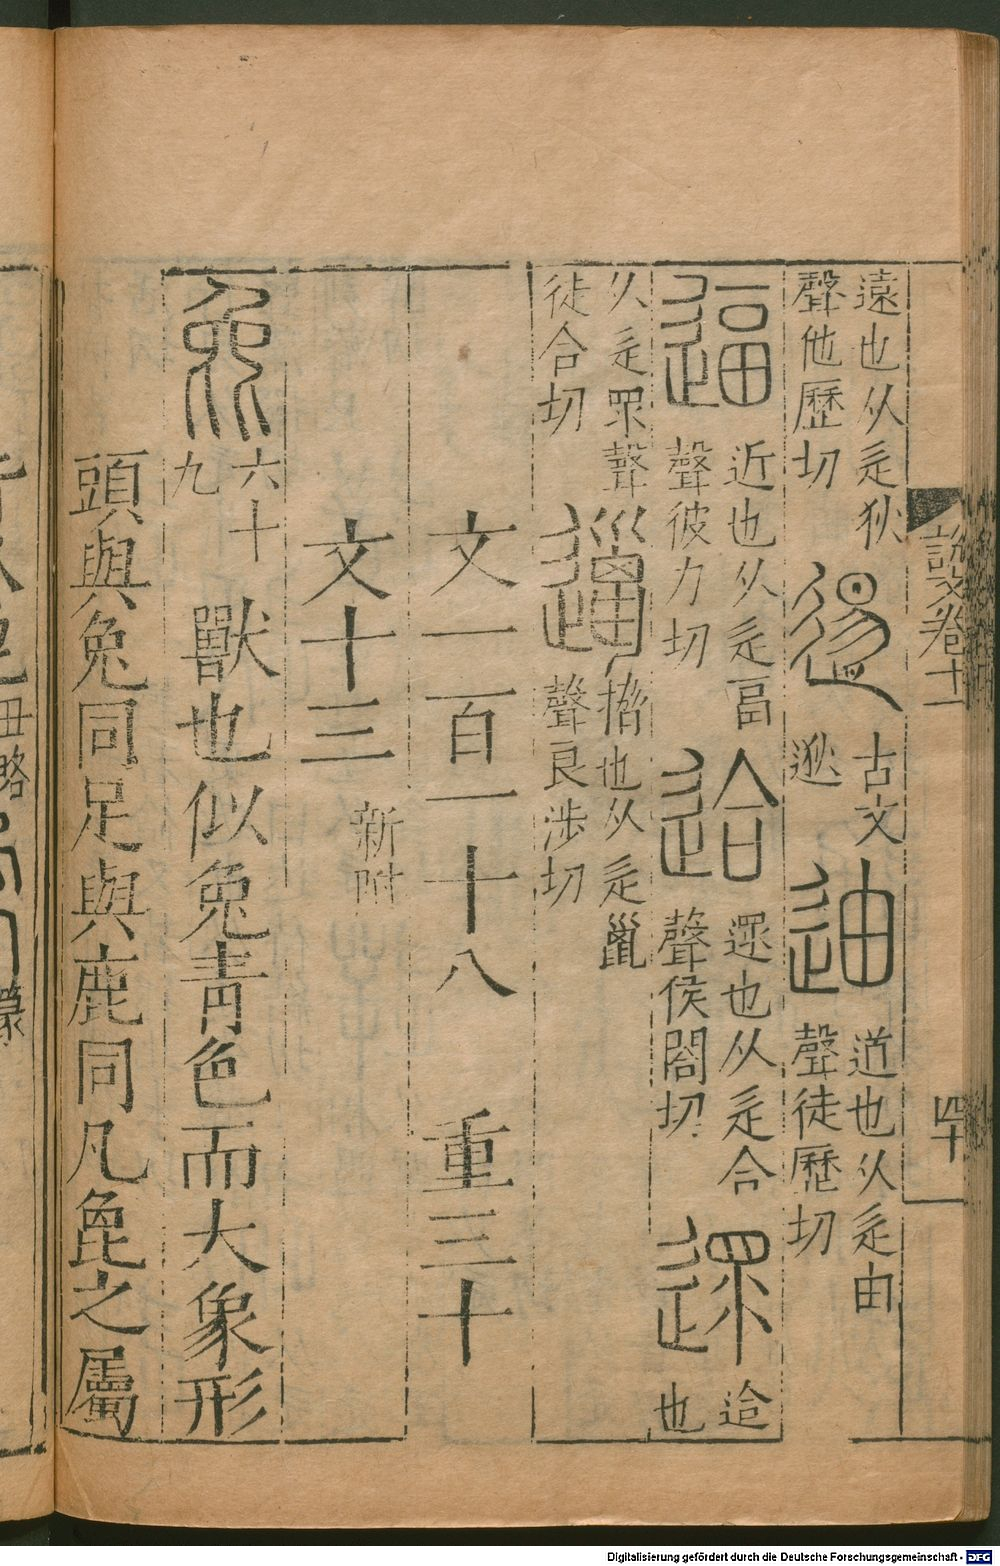 說文卷十
四十
遠也从辵狄
聲他歷切
逷
古文
逖
迪
道也从辵由
聲徒歷切
逼
近也从辵畐
聲彼力切
䢔
遝也从辵合
聲侯閤切
遝
䢔
也
从辵眔聲
徒合切
邋
搚也从辵巤
聲良涉切
文一百一十八 重三十
文十三 新附
㲋
六十
九
獸也似兔青色而大象形
頭與兔同足與鹿同凡㲋之屬
丑略
篆
Digitalisierung gefördert durch die Deutsche Forschungsgemeinschaft - DFG